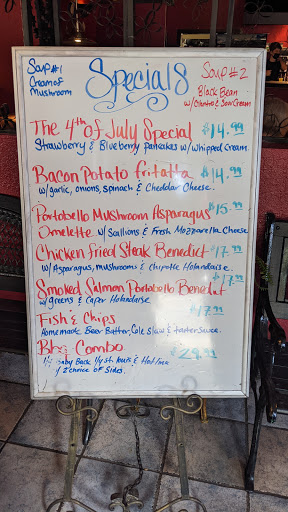 Soup #1
Cream of
Mushroom
Specials
Soup #2
Black Bean
w/ Cilantro & Sour Cream
The 4th of July Special $14.99
Strawberry & Blueberry pancakes w/ whipped cream.
Bacon Potato frittatta $14.99
w/ garlic, onions, spinach & Cheddar Cheese.
Portobello Mushroom Asparagus $15.99
Omelette w/ Scallions & Fresh Mozzarella Cheese
Chicken Fried Steak Benedict $17.99
w/ Asparagus, mushrooms & Chipotle Holandaise.
Smoked Salmon Portobello Benedict
w/ greens & Caper Holandaise $17.99
Fish & Chips $17.99
Homemade Beer Batter, Cole Slaw & tarter sauce.
Bbq Combo $29.99
Baby Back 1/4 st. louis & Hot link
w/ 2 choice of Sides.